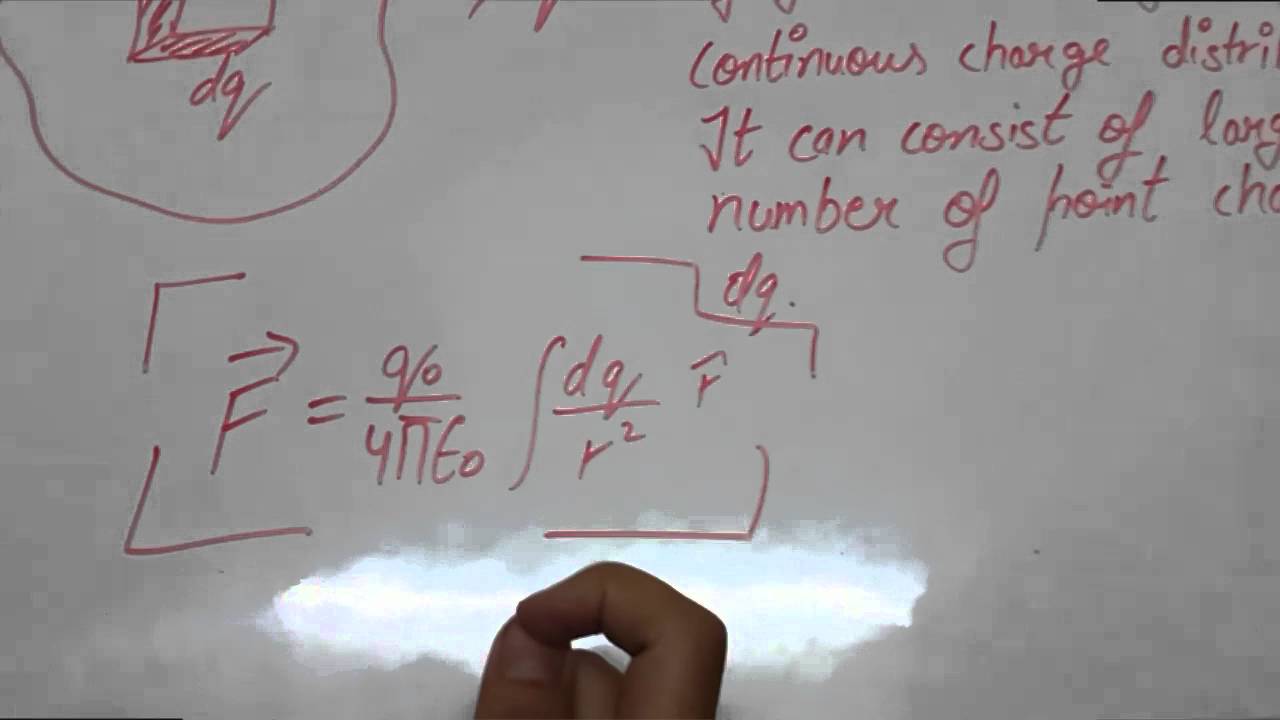 dq
continuous charge
It can consist of
number of point
dq.
F⃗ = q₀/4πε₀ ∫ dq/r² r̂